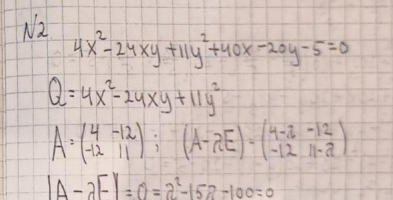 N2
4x²-24xy+11y²+40x-20y-5=0
Q=4x²-24xy+11y²
A=(4 -12; -12 11); (A-λE)=(4-λ -12; -12 11-λ)
|A-λE|=0=λ²-15λ-100=0